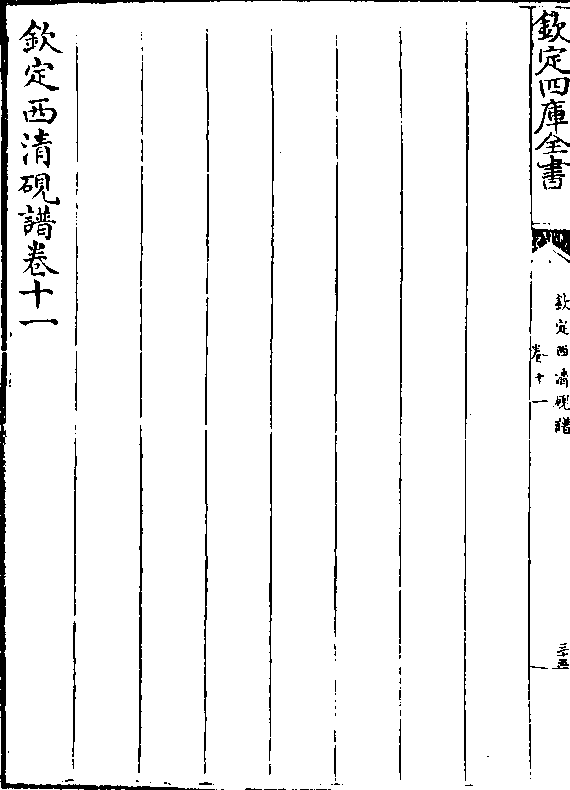 欽定四庫全書
欽定西清硯譜
卷十一
三十五
欽定西清硯譜卷十一